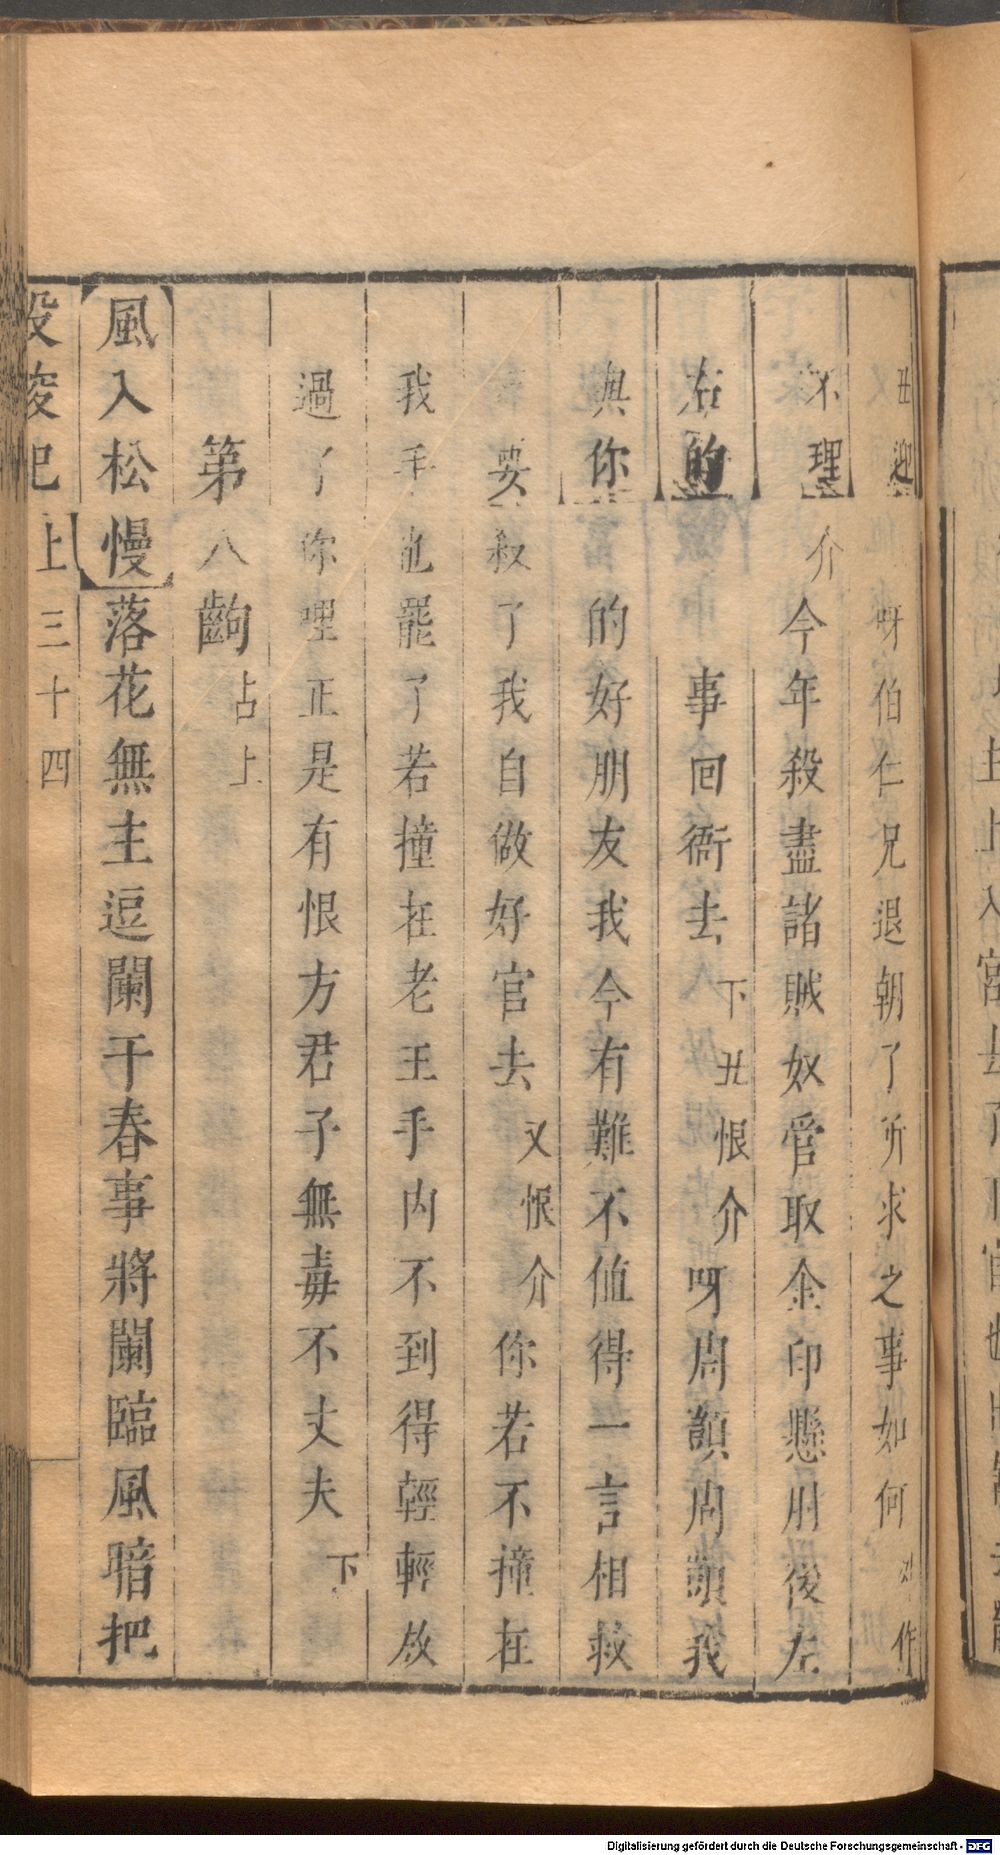 丑迎 呀伯仁兄退朝了所求之事如何 外作
不理介 今年殺盡諸賊奴當取金印懸肘後左
右的 事回衙去 下丑恨介 呀周顗周顗我
與你 的好朋友我今有難不值得一言相救
要救了我自做好官去 又恨介 你若不撞在
我手也罷了若撞在老王手內不到得輕輕放
過了你哩正是有恨方君子無毒不丈夫 下
第八齣 占上
風入松慢 落花無主逗闌干春事將闌臨風暗把
投梭記 上 三十四
Digitalisierung gefördert durch die Deutsche Forschungsgemeinschaft - DFG